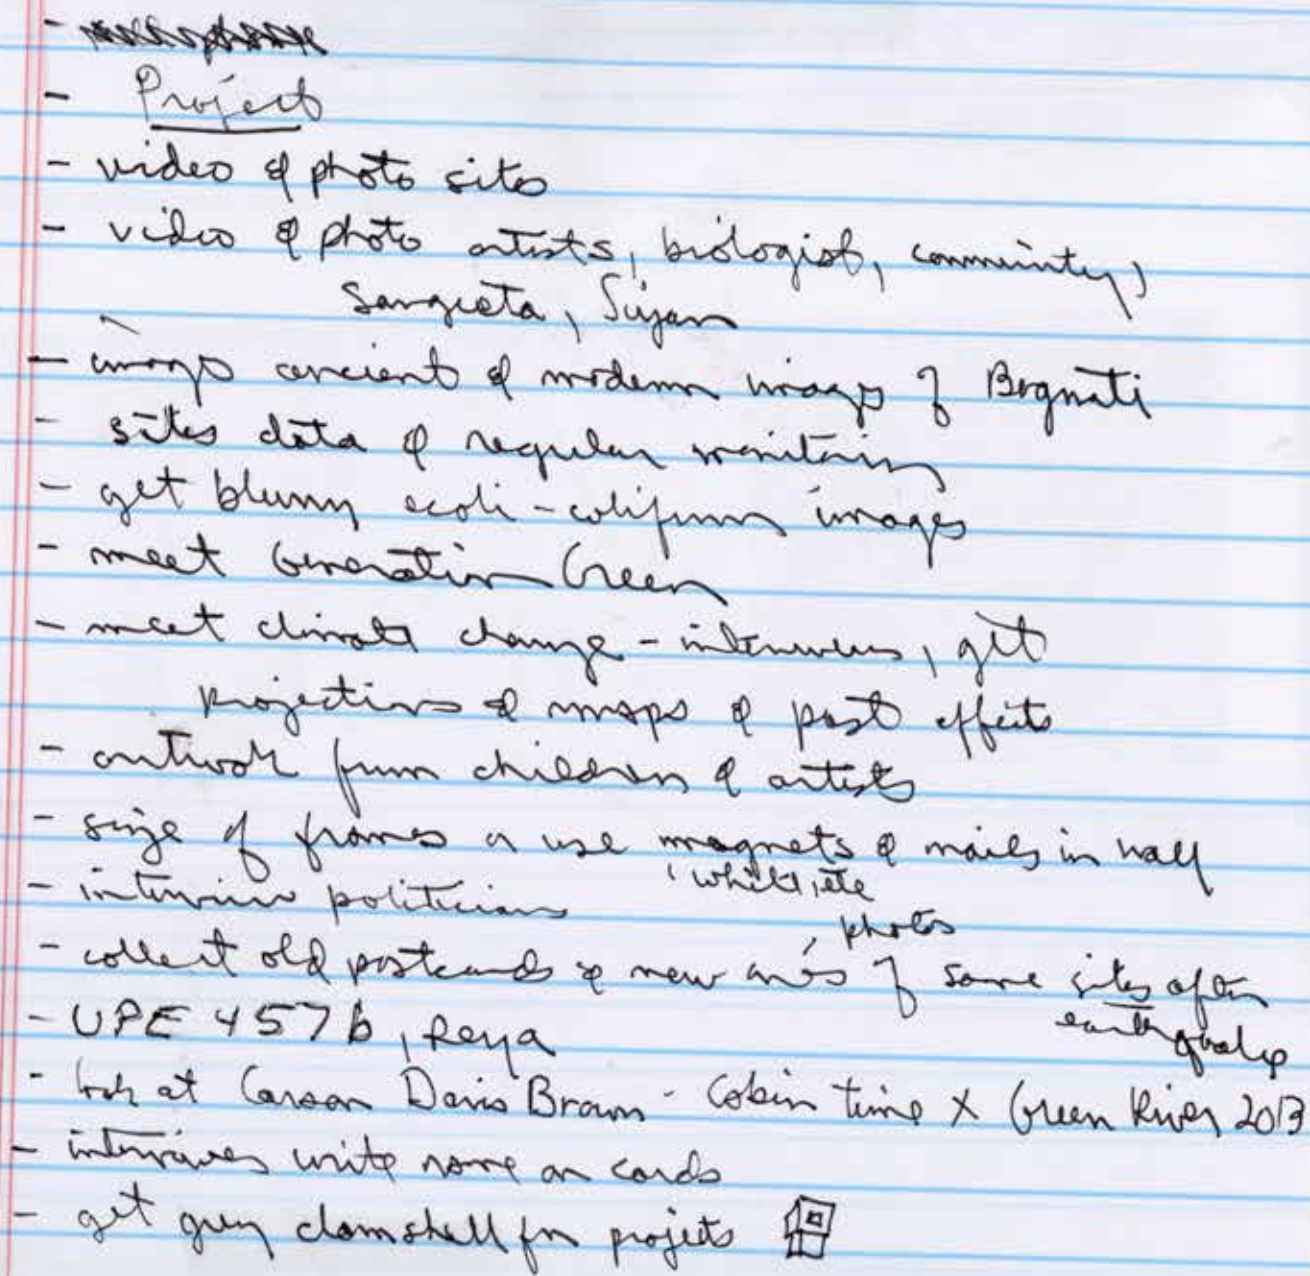 - Project
- video & photo sites
- video & photo artists, biologist, community,
Sangeeta, Sujan
- images ancient & modern images of Bagmati
- sites data & regular monitoring
- get blurry ecoli-coliform images
- meet Generation Green
- meet climate change - interviews, get
projections & maps & past effects
- artwork from children & artists
- size of frames or use magnets & nails in wall
white, etc
- interview politicians
photos
- collect old postcards & new ones of same sites after
earthquake
- UPE 457b,
- look at Carson Davis Brown - Cabin time X Green River 2013
- interviews write name on cards
- get grey clamshell for projects